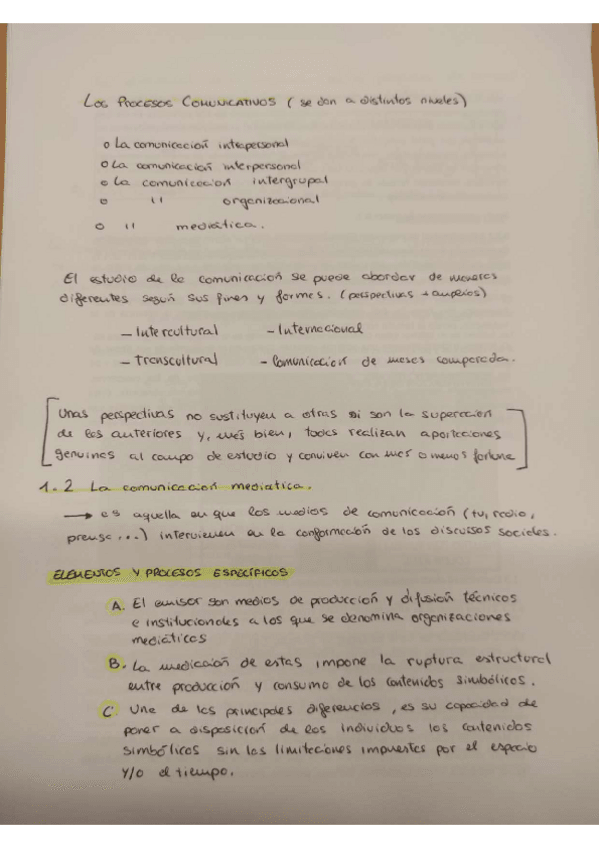 LOS PROCESOS COMUNICATIVOS (se dan a distintos niveles)
o La comunicación intrapersonal
o La comunicación interpersonal
o La comunicacion intergrupal
o " organizacional
o " mediática.
El estudio de la comunicación se puede abordar de maneras
diferentes según sus fines y formas. (perspectivas + amplias)
- Intercultural - Internacional
- Transcultural - Comunicación de masas comparada.
Unas perspectivas no sustituyen a otras si son la superación
de las anteriores y, más bien, todas realizan aportaciones
genuinas al campo de estudio y conviven con mas o menos fortuna
1.2 La comunicacion mediatica.
→ es aquella en que los medios de comunicación (tv, radio,
prensa ...) intervienen en la conformación de los discursos sociales.
ELEMENTOS Y PROCESOS ESPECÍFICOS
A. El emisor son medios de producción y difusión técnicos
e institucionales a los que se denomina organizaciones
mediáticas
B. La mediación de estas impone la ruptura estructural
entre producción y consumo de los contenidos simbólicos.
C. Una de las principales diferencias, es su capacidad de
poner a disposición de los individuos los contenidos
simbólicos sin las limitaciones impuestas por el espacio
y/o el tiempo.